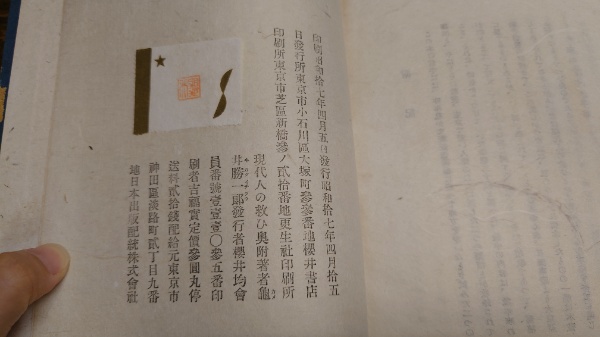 印刷昭和拾七年四月五日發行昭和拾七年四月拾五
日發行所東京市小石川區大塚町參參番地櫻井書店
印刷所東京市芝區新橋參ノ貳拾番地更生社印刷所
現代人の救ひ奧附著者龜
井勝一郎發行者櫻井均會
員番號壹壹壹〇參五番印
刷者吉福實定價參圓丸停
送料貳拾錢配給元東京市
神田區淡路町貳丁目九番
地日本出版配給株式會社